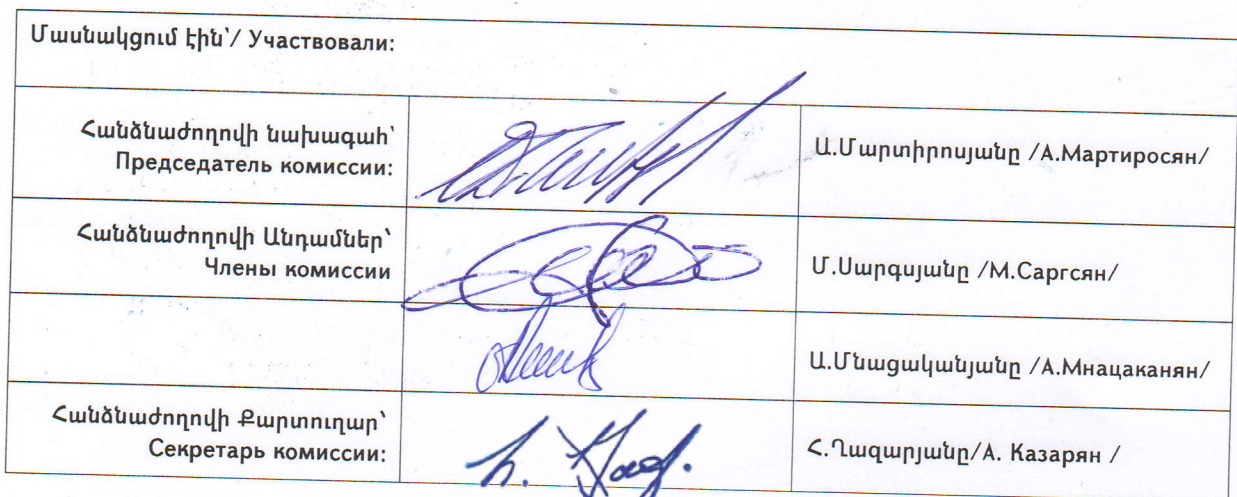 Մասնակցում էին՝/ Участвовали:
Հանձնաժողովի նախագահ՝
Председатель комиссии:
Ա.Մարտիրոսյանը /А.Мартиросян/
Հանձնաժողովի Անդամներ՝
Члены комиссии
Մ.Սարգսյանը /М.Саргсян/
Ա.Մնացականյանը /А.Мнацаканян/
Հանձնաժողովի Քարտուղար՝
Секретарь комиссии:
Հ.Ղազարյանը/А. Казарян /